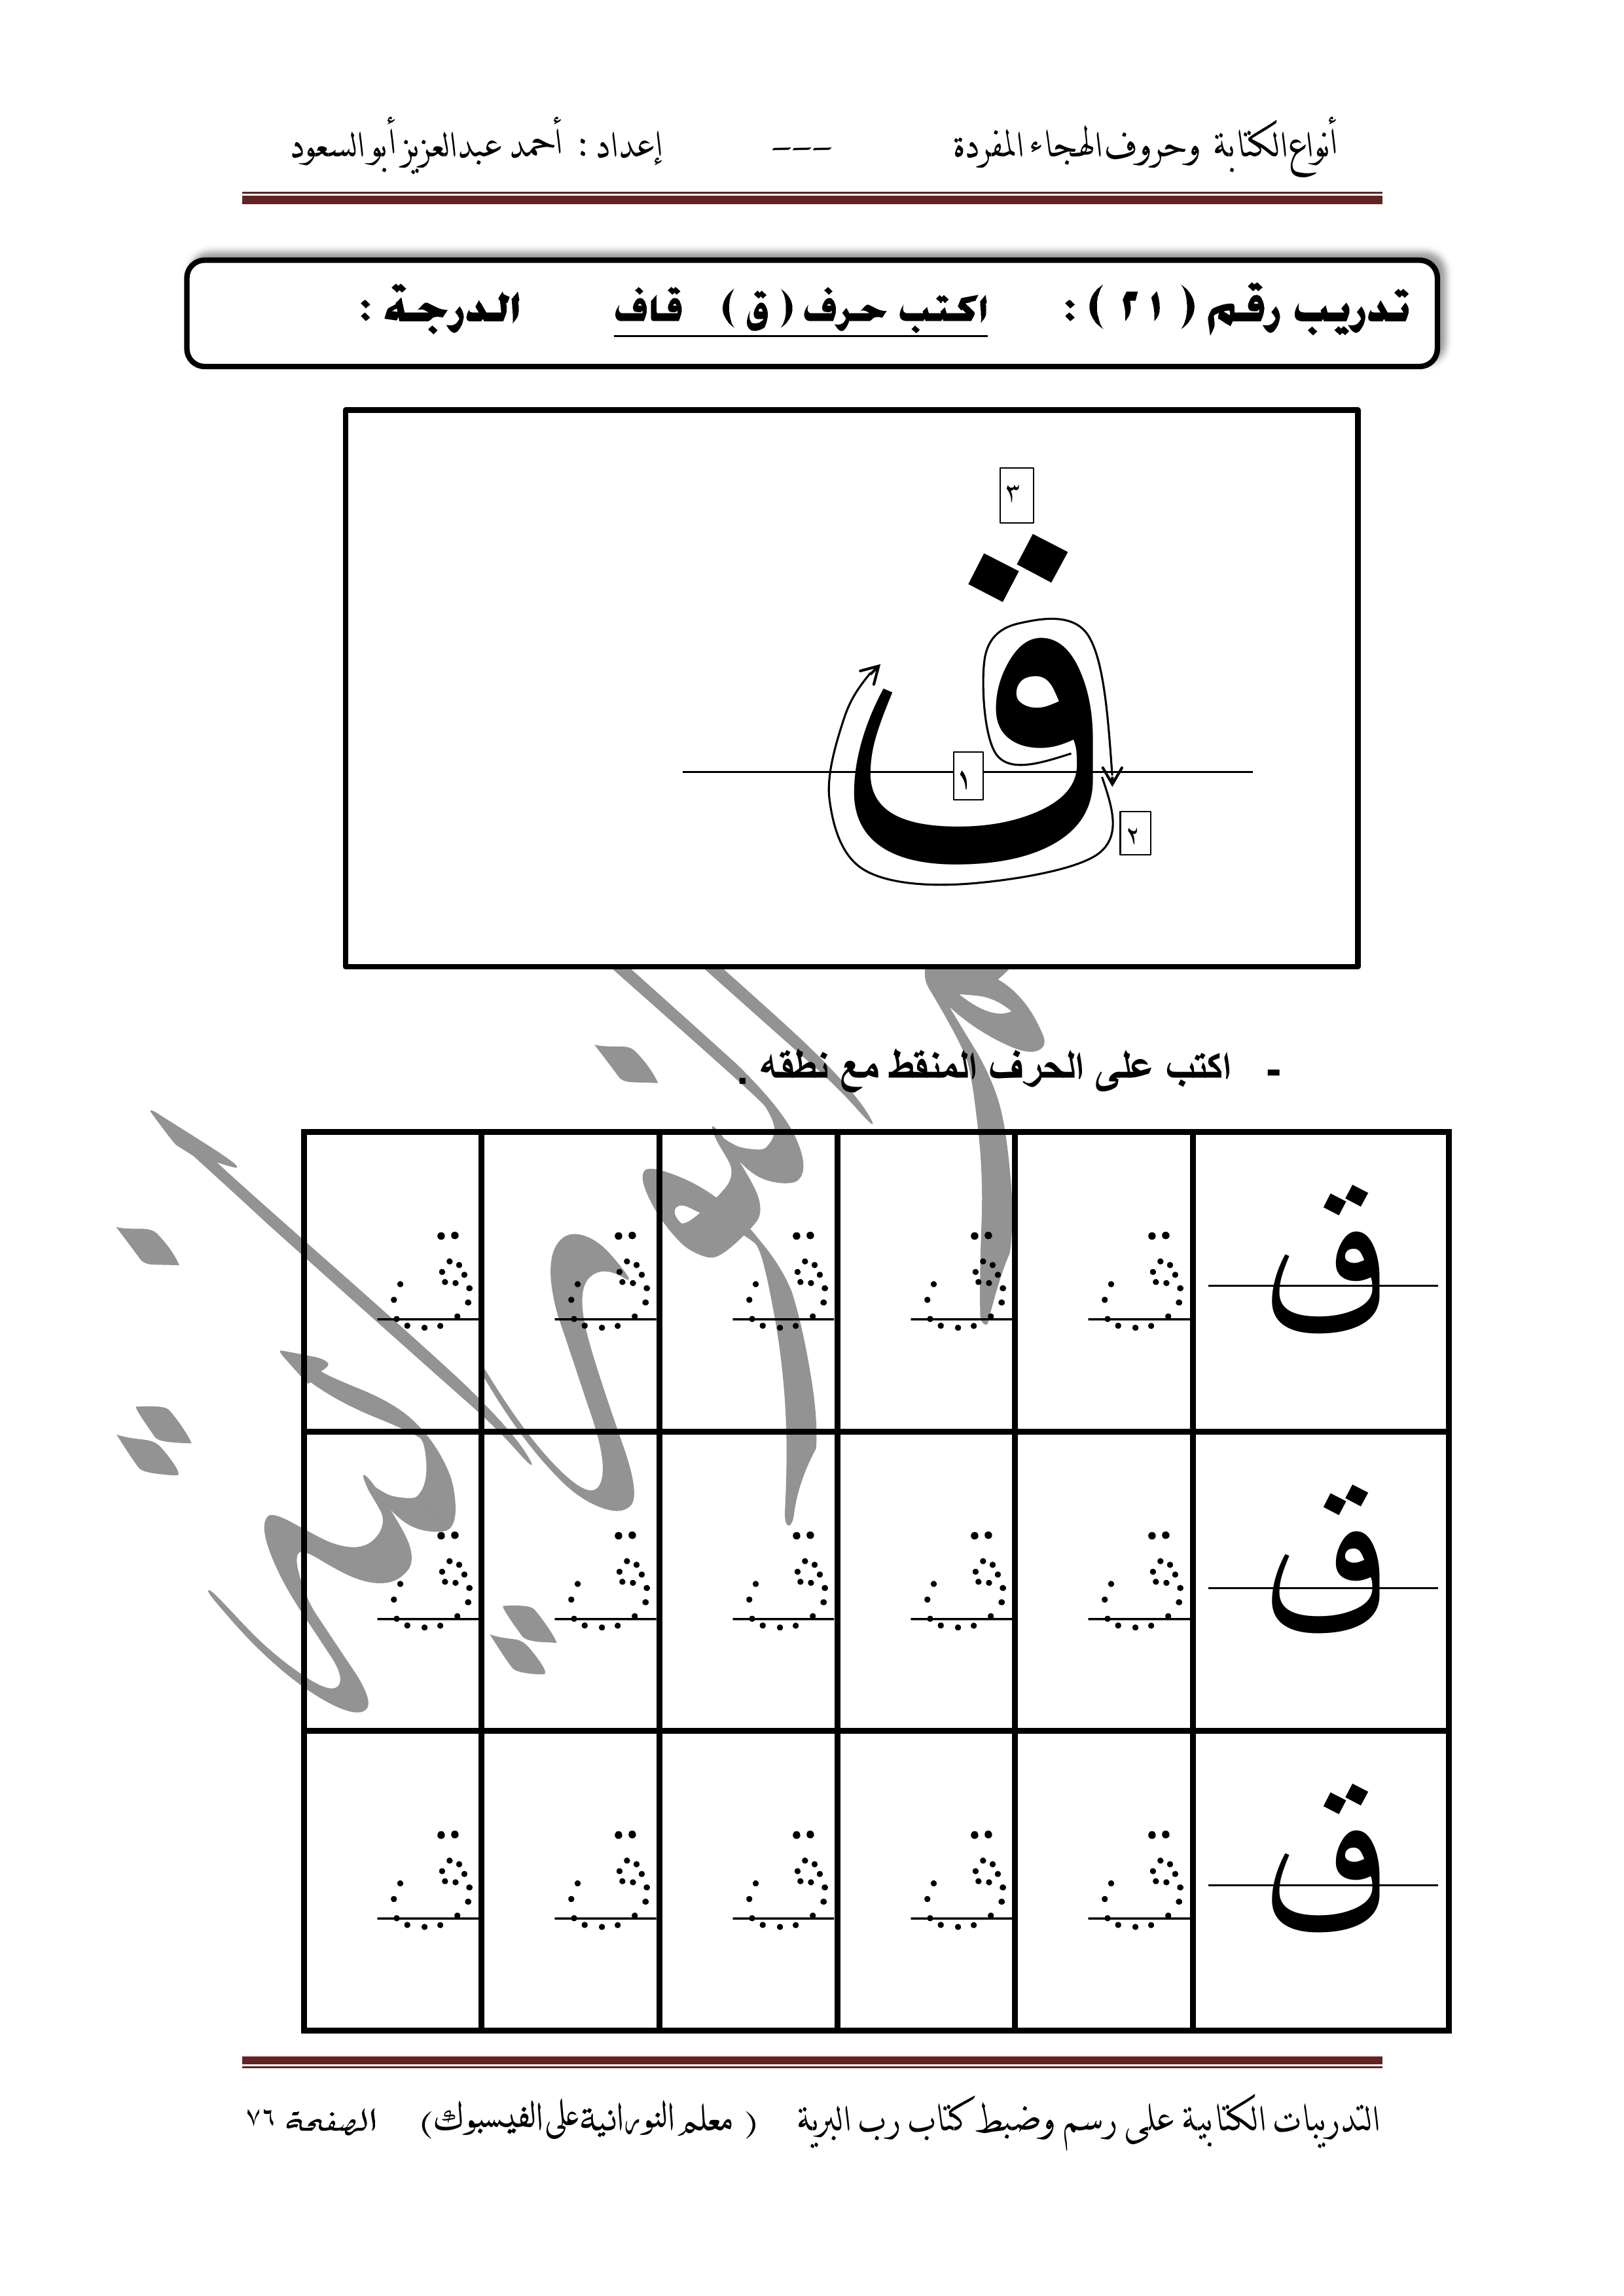 أنواع الكتابة وحروف الهجاء المفردة --- إعداد : أحمد عبدالعزيز أبو السعود
تدريب رقم ( ٢١ ) : اكتب حرف ( ق ) قاف الدرجة :
٣
ق
١
٢
- اكتب على الحرف المنقط مع نطقه .
ق ق ق ق ق ق
ق ق ق ق ق ق
ق ق ق ق ق ق
التدريبات الكتابية على رسم وضبط كتاب رب البرية ( معلم النورانية على الفيسبوك) الصفحة ٧٦